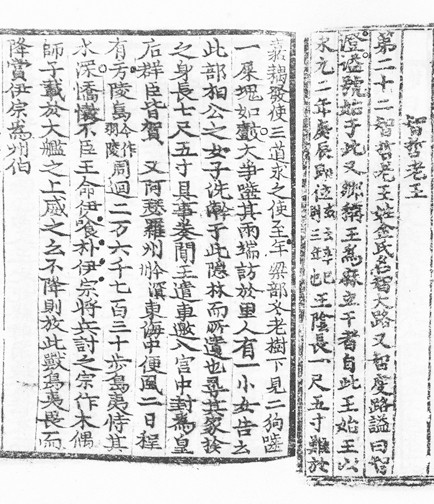 智哲老王
第二十二智哲老王姓金氏名智大路又智度路謚曰智
澄謚號始于此又鄉稱王爲麻立干者自此王始王以
永元二年庚辰即位或云辛巳則三年也王陰長一尺五寸難於
嘉耦發使三道求之使至牟梁部冬老樹下見二狗嚙
一屎塊如皷大爭嚙其兩端訪於里人有一小女告云
此部相公之女子洗澣于此隱林而所遺也尋其家檢
之身長七尺五寸具事奏聞王遣車邀入宮中封爲皇
后群臣皆賀 又阿瑟羅州今溟州東海中便風二日程
有亐陵島今作羽陵周迴二万六千七百三十步島夷恃其
水深憍慠不臣王命伊飡朴伊宗將兵討之宗作木偶
師子載於大艦之上威之云不降則放此獸島夷畏而
降賞伊宗爲州伯